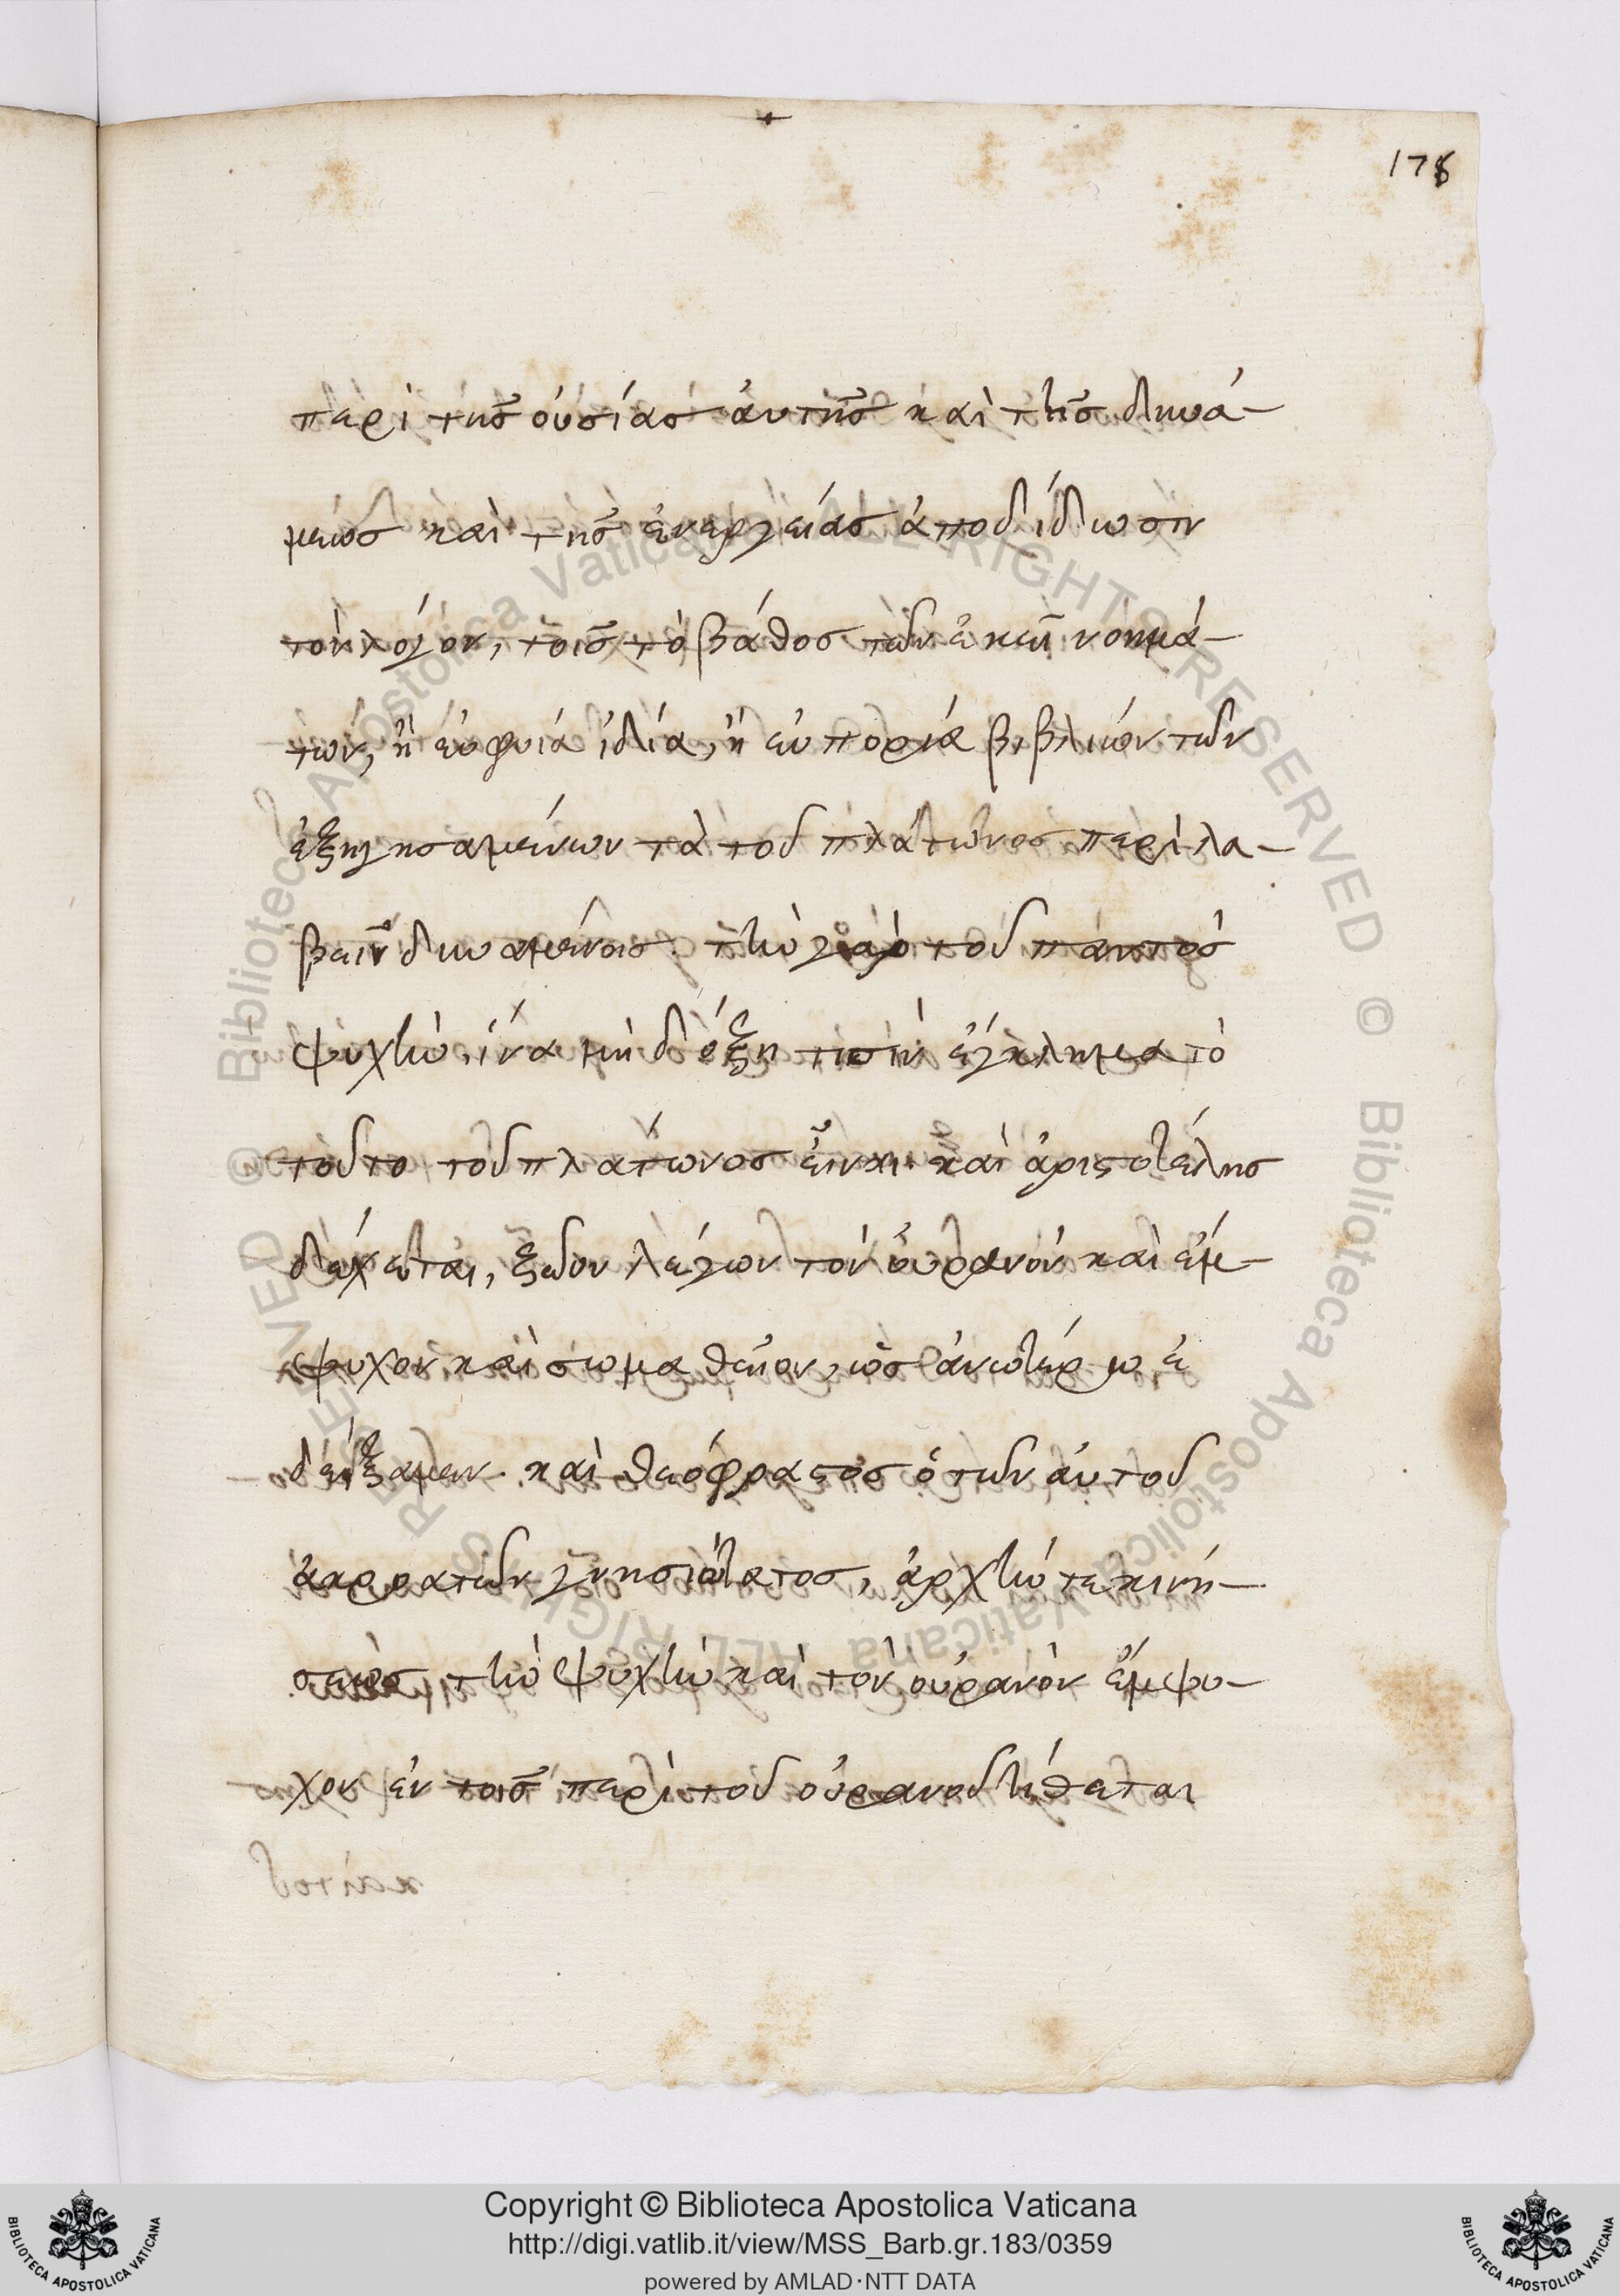 178
περὶ τῆς οὐσίας ἀυτῆς καὶ τῆς δυνά-
μεώς καὶ τῆς ἐνεργείας ἀποδίδωσὴν
τὸν λόγον, τοῖς τὸ βάθος τῶν ἐκεῖ νοημά-
των, ἢ εὐφυΐα ἰδία, ἢ εὐπορία βιβλίων τῶν
ἐξηγησαμένων τὰ τοῦ πλάτωνος περιλα-
βεῖν δυναμένοις. τὴν γὰρ τοῦ παντὸς
ψυχὴν, ἵνα μὴ δόξη τισὴν ἔγκλημα τὸ
τοῦτο τοῦ πλάτωνος εἶναι. καὶ ἀριστοτέλης
δέχεται, ξῶον λέγων τὸν οὐρανὸν καὶ ἔμ-
ψυχον καὶ σωμα θεῖον, ὡς ἀνωτέρω ἐ
δείξαμεν. καὶ θεόφραστος ὁ τῶν ἀυτοῦ
ἀκροατῶν γνησιώτατος, ἀρχὴν τε κινή-
σεως, τὴν ψυχὴν καὶ τὸν οὐρανὸν ἔμψυ-
χον ἐν τοῖς περὶ τοῦ οὐρανοῦ τίθεται
Copyright © Biblioteca Apostolica Vaticana
http://digi.vatlib.it/view/MSS_Barb.gr.183/0359
powered by AMLAD·NTT DATA
BIBLIOTECA APOSTOLICA VATICANA
BIBLIOTECA APOSTOLICA VATICANA
© Biblioteca Apostolica Vaticana ALL RIGHTS RESERVED
© Biblioteca Apostolica Vaticana ALL RIGHTS RESERVED